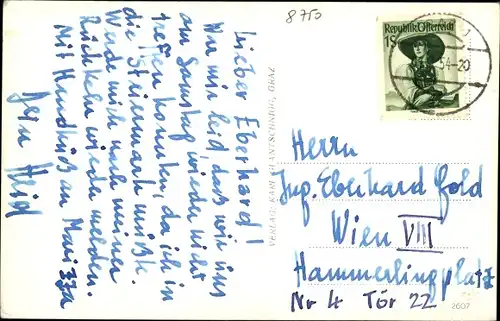 8750
Republik Österreich
1S
54-20
Lieber Eberhard!
War mir leid, daß wir uns
am Samstag wieder nicht
treffen konnten, da ich in
die Steiermark mußte.
Werde mich nach meiner
Rückkehr wieder melden.
Mit Handkuß an
Dein
VERLAG: KARL GLANTSCHNIGG, GRAZ
Herrn
Ing. Eberhard Gold
Wien VIII
Hammerlingplatz
Nr 4 Tür 22
2607